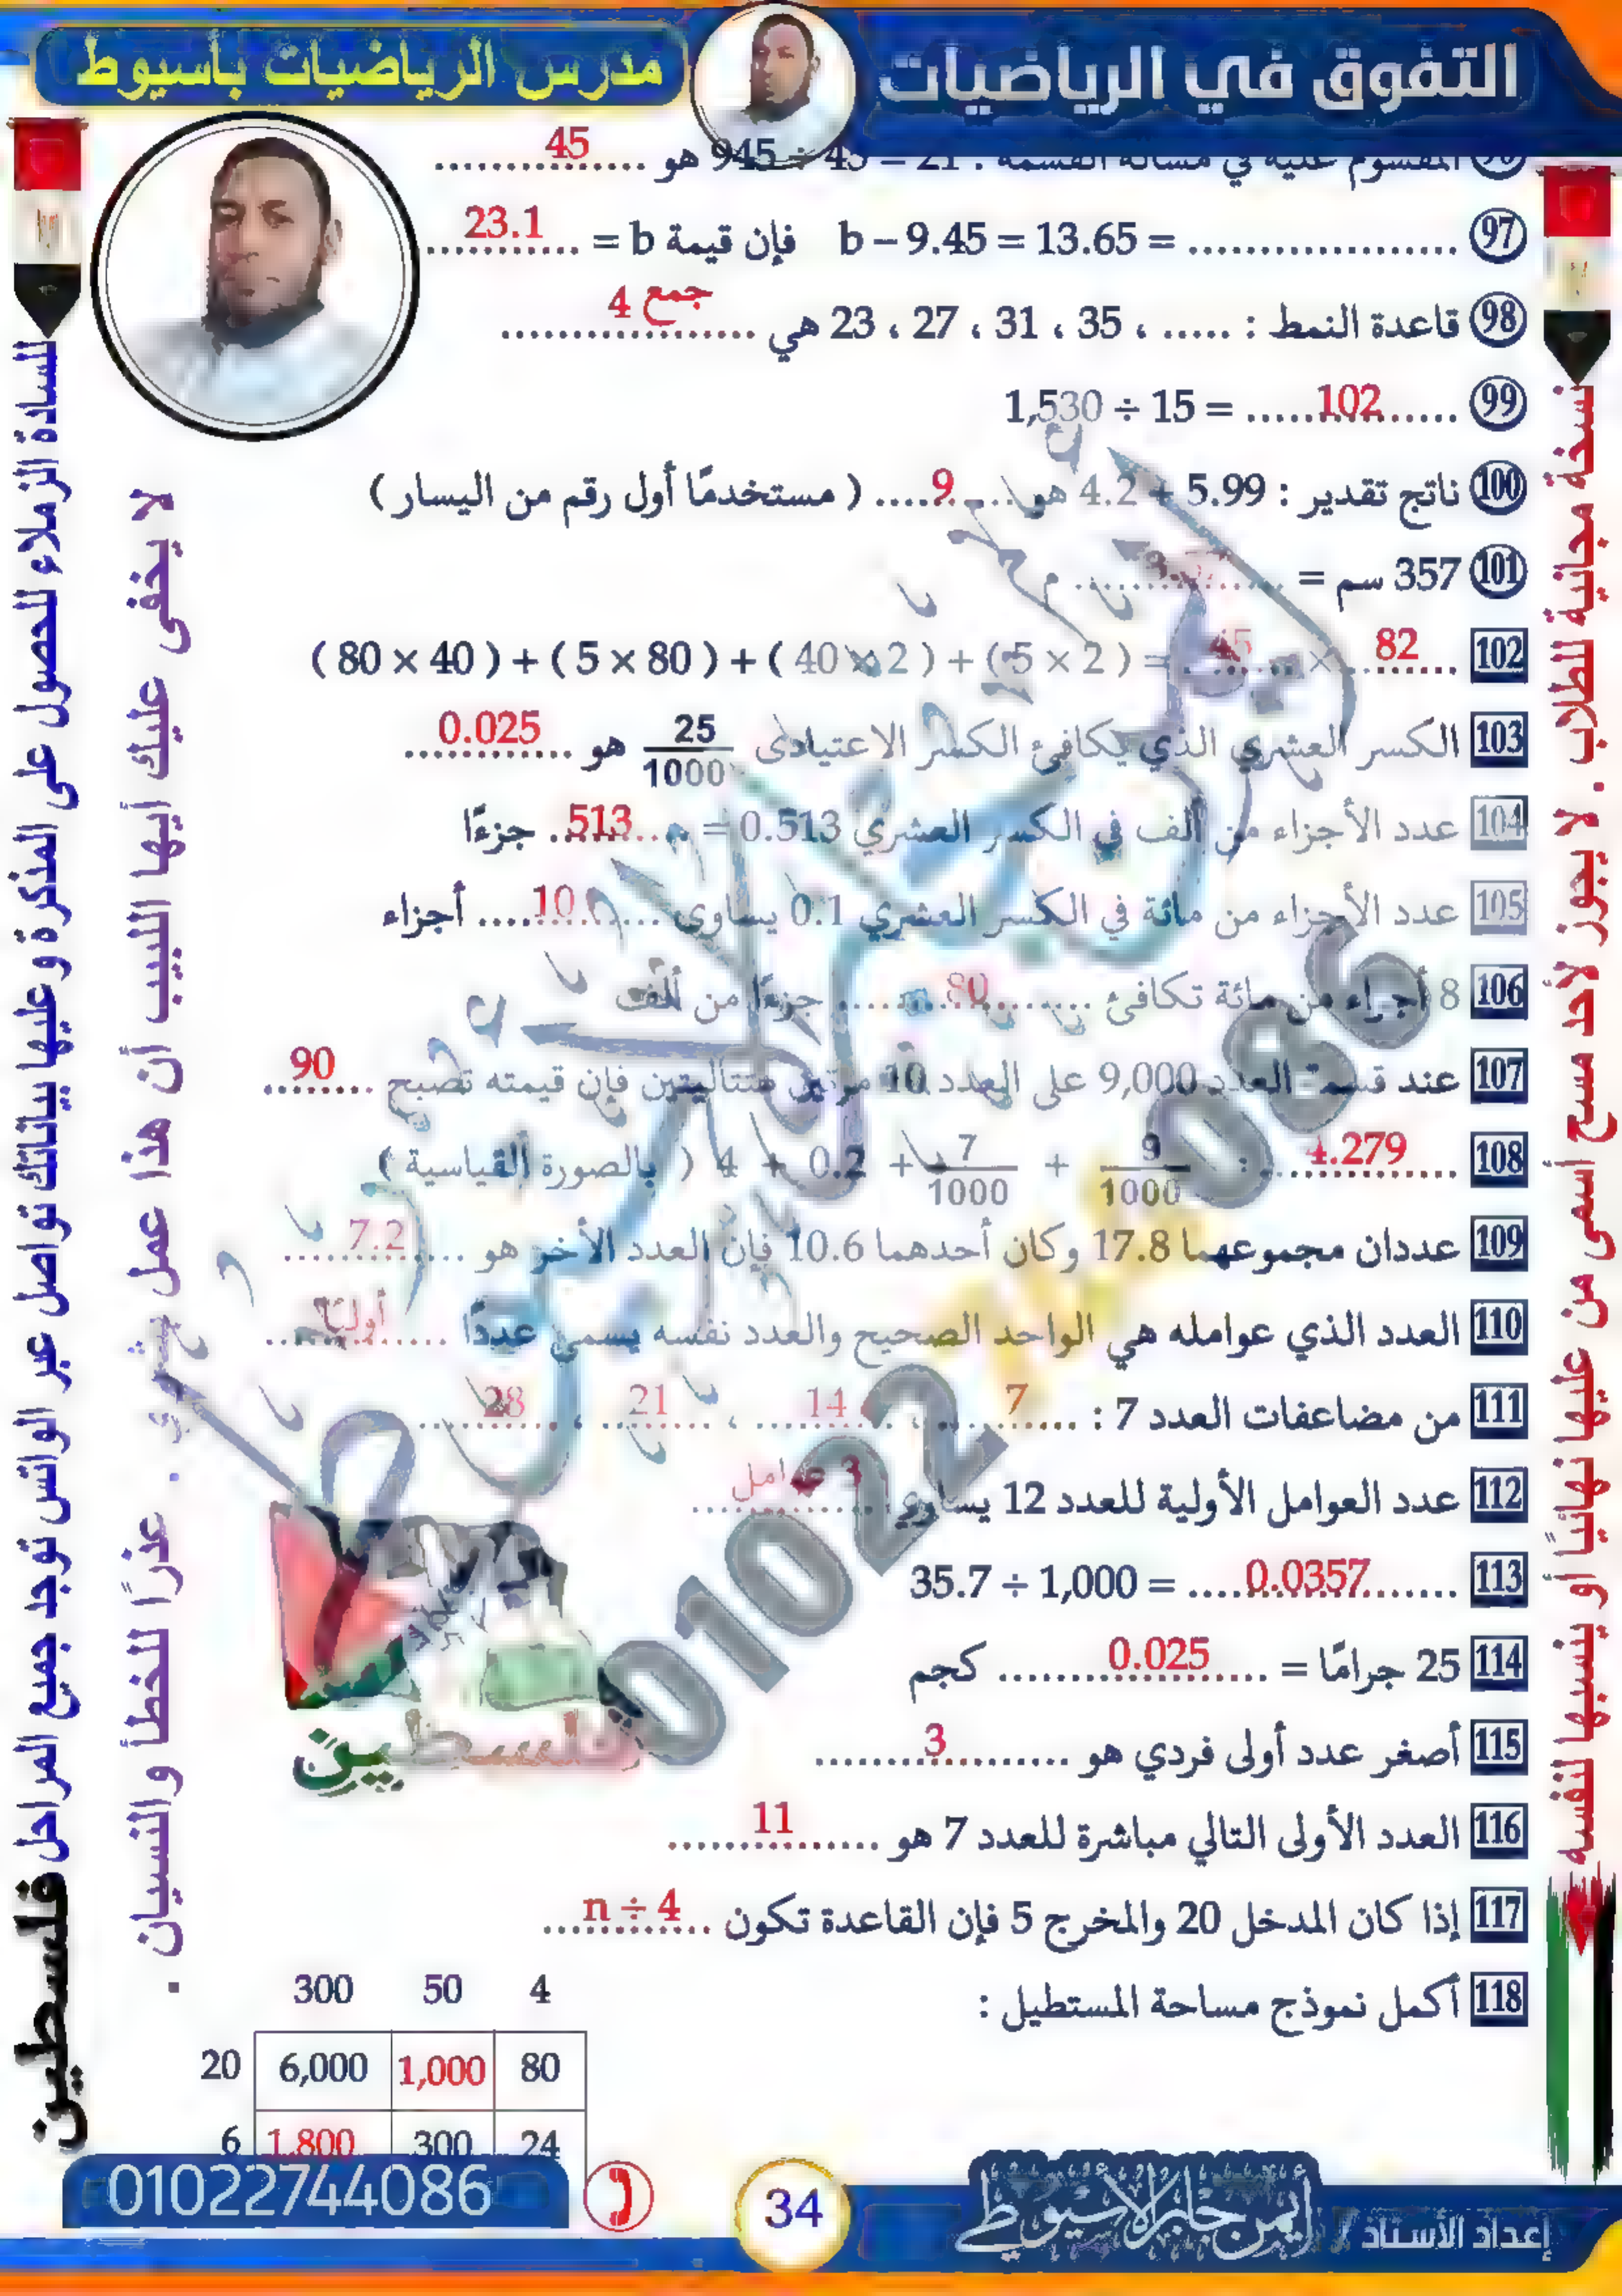 التفوق في الرياضيات
مدرس الرياضيات بأسيوط
المقسوم عليه في مسألة القسمة : 21 = 45 ÷ 945 هو 45
97 b – 9.45 = 13.65 = .................... فإن قيمة b = 23.1
98 قاعدة النمط : ..... ، 35 ، 31 ، 27 ، 23 هي جمع 4
99 1,530 ÷ 15 = 102
100 ناتج تقدير : 5.99 + 4.2 هو 9 ( مستخدمًا أول رقم من اليسار )
101 357 سم = 3.57 م
102 82 × 45 = ( 80 × 40 ) + ( 5 × 80 ) + ( 40 × 2 ) + ( 5 × 2 )
103 الكسر العشري الذي يكافئ الكسر الاعتيادى 25/1000 هو 0.025
104 عدد الأجزاء من ألف في الكسر العشري 0.513 = 513 جزءًا
105 عدد الأجزاء من مائة في الكسر العشري 0.1 يساوى 10 أجزاء
106 8 أجزاء من مائة تكافئ 80 جزءًا من ألف
107 عند قسمة العدد 9,000 على العدد 10 مرتين متتاليتين فإن قيمته تصبح 90
108 4.279 : 9/1000 + 7/1000 + 0.2 + 4 ( بالصورة القياسية )
109 عددان مجموعهما 17.8 وكان أحدهما 10.6 فإن العدد الأخر هو 7.2
110 العدد الذي عوامله هي الواحد الصحيح والعدد نفسه يسمى عددًا أوليًا
111 من مضاعفات العدد 7 : 7 ، 14 ، 21 ، 28
112 عدد العوامل الأولية للعدد 12 يساوي 3 عوامل
113 35.7 ÷ 1,000 = 0.0357
114 25 جرامًا = 0.025 كجم
115 أصغر عدد أولى فردي هو 3
116 العدد الأولى التالي مباشرة للعدد 7 هو 11
117 إذا كان المدخل 20 والمخرج 5 فإن القاعدة تكون n ÷ 4
118 أكمل نموذج مساحة المستطيل :
300 50 4
20 6,000 1,000 80
6 1,800 300 24
نسخة مجانية للطلاب . لا يجوز لأحد مسح أسمى من عليها نهائيًا أو ينسبها لنفسه
لا يخفى عليك أيها اللبيب أن هذا عمل بشري . عذرًا للخطأ والنسيان .
للسادة الزملاء للحصول على المذكرة وعليها بياناتك تواصل عبر الواتس توجد جميع المراحل
فلسطين
فلسطين
01022744086
إعداد الأستاذ / أيمن جابر الأسيوطي
34
01022744086